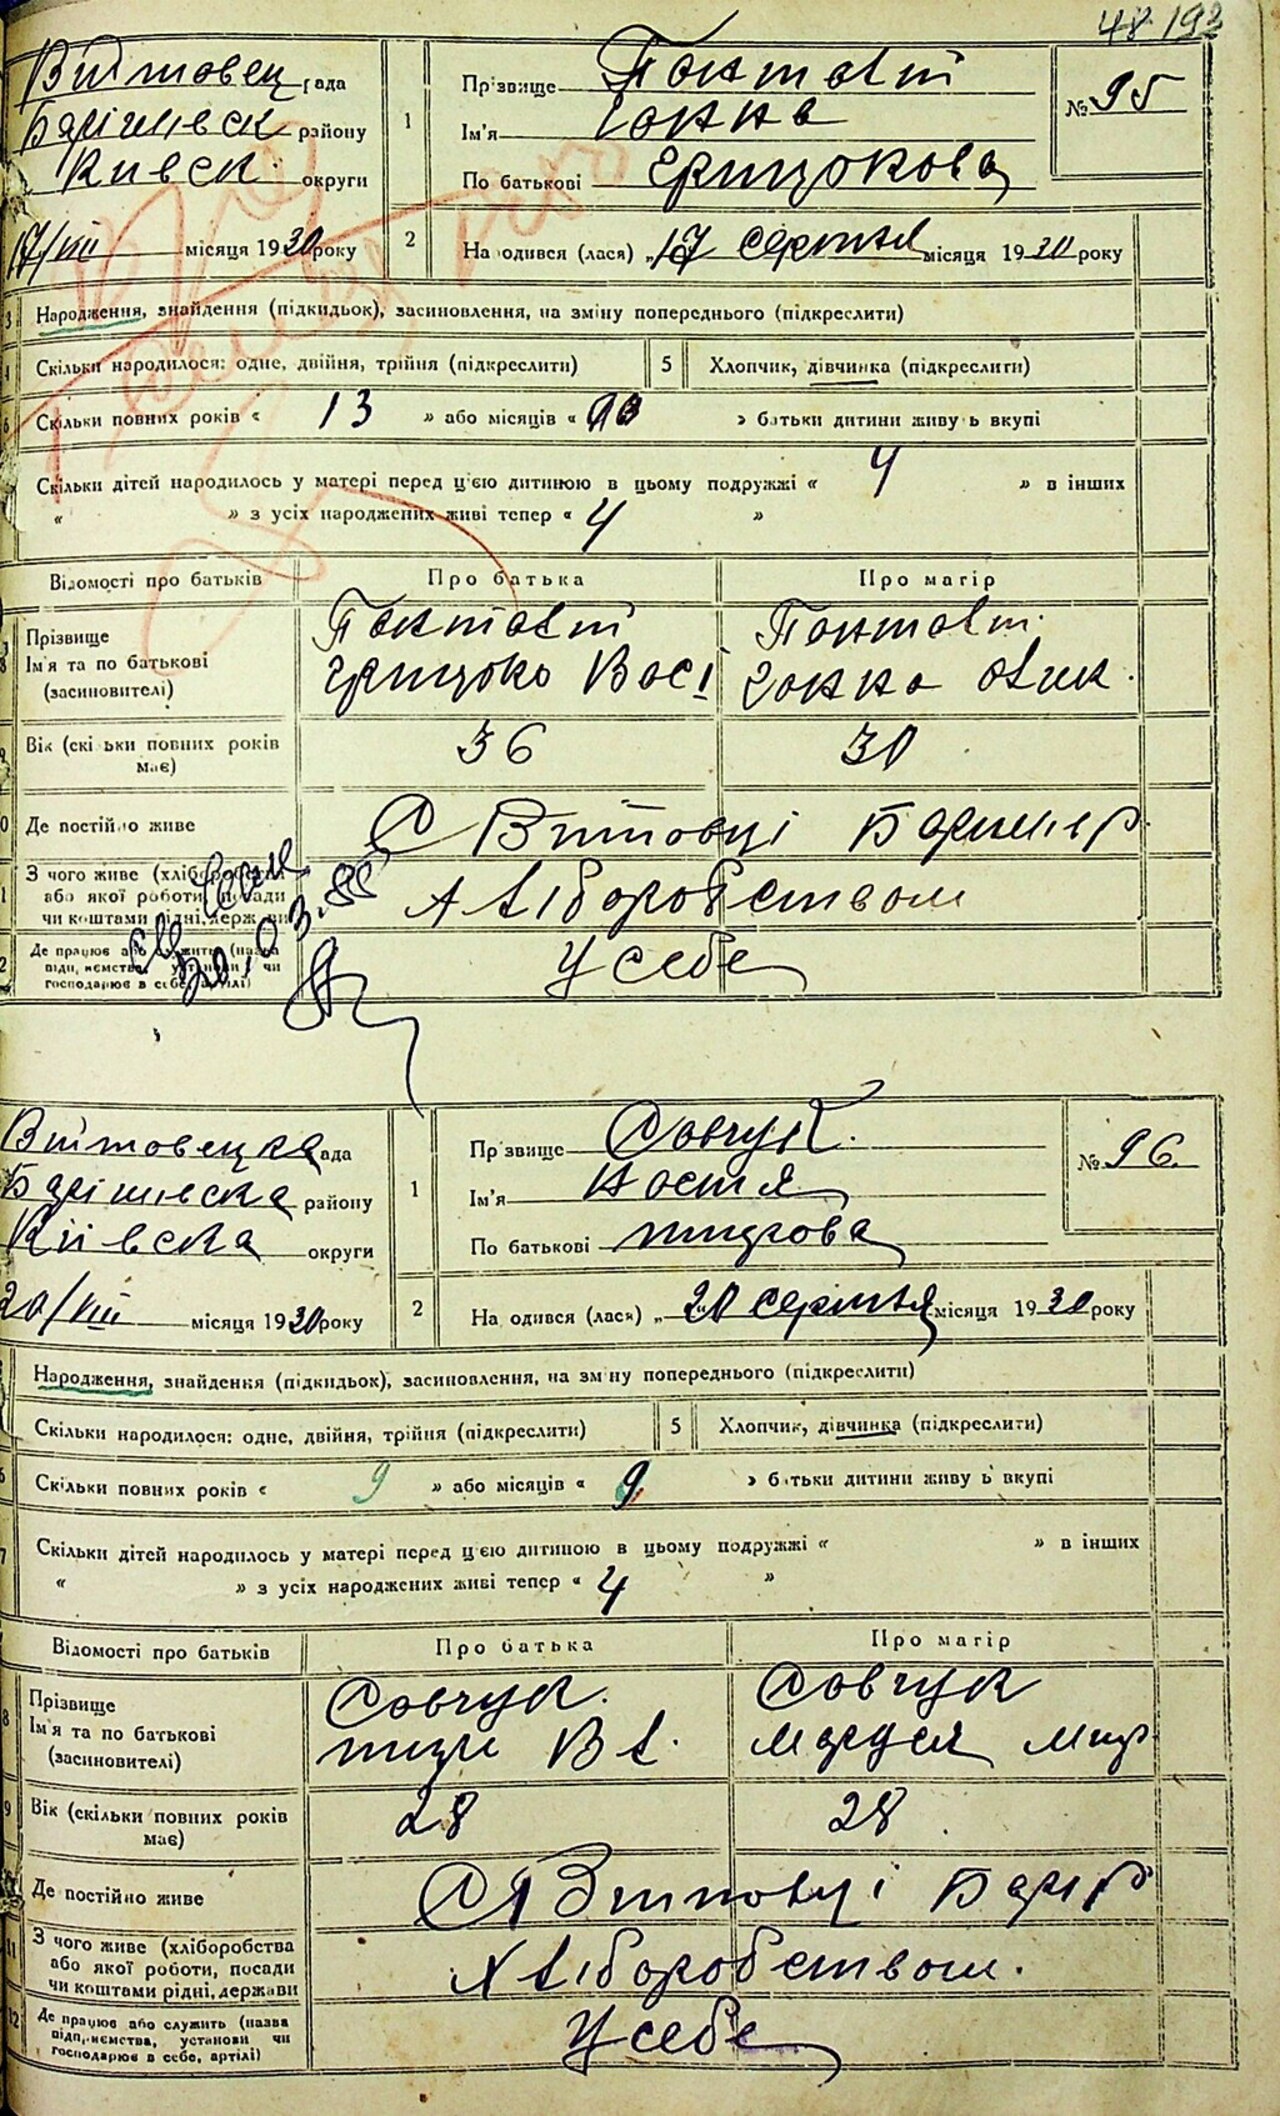 48 193
Війтовец рада
Баришевск району
Киевск округи
17/VIII місяця 1930 року
1 Прізвище
Ім'я Ганна
По батькові Грицькова
№ 95
2 Народився (лася) „17 серпня місяця 1930 року
3 Народження, знайдення (підкидьок), засиновлення, на зміну попереднього (підкреслити)
4 Скільки народилося: одне, двійня, трійня (підкреслити)
5 Хлопчик, дівчинка (підкреслити)
6 Скільки повних років « 13 » або місяців « » батьки дитини живуть вкупі
Скільки дітей народилось у матері перед цією дитиною в цьому подружжі « 4 » в інших
« » з усіх народжених живі тепер « 4 »
Відомості про батьків Про батька Про матір
Прізвище
Ім'я та по батькові
(засиновителі)
Грицько Васі Ганна Олик.
Вік (скільки повних років має) 36 30
Де постійно живе С Війтовці Баришев р.
З чого живе (хліборобства
або якої роботи, посади
чи коштами рідні, держави
Хліборобством
Де працює або служить (назва
підприємства, установи чи
господарює в себе, артілі)
У себе
Війтовецка рада
Баришевска району
Киівска округи
20/VIII місяця 1930 року
1 Прізвище Савчук.
Ім'я Настя
По батькові
№ 96.
2 Народився (лася) „20 серпня місяця 1930 року
Народження, знайдення (підкидьок), засиновлення, на зміну попереднього (підкреслити)
Скільки народилося: одне, двійня, трійня (підкреслити)
5 Хлопчик, дівчинка (підкреслити)
6 Скільки повних років « 9 » або місяців « 9 » батьки дитини живуть вкупі
7 Скільки дітей народилось у матері перед цією дитиною в цьому подружжі « » в інших
« » з усіх народжених живі тепер « 4 »
Відомості про батьків Про батька Про матір
8 Прізвище Савчук. Савчук
Ім'я та по батькові
(засиновителі)
9 Вік (скільки повних років має) 28 28
Де постійно живе С Війтовці Бариш р
11 З чого живе (хліборобства
або якої роботи, посади
чи коштами рідні, держави
Хліборобством.
12 Де працює або служить (назва
підприємства, установи чи
господарює в себе, артілі)
У себе